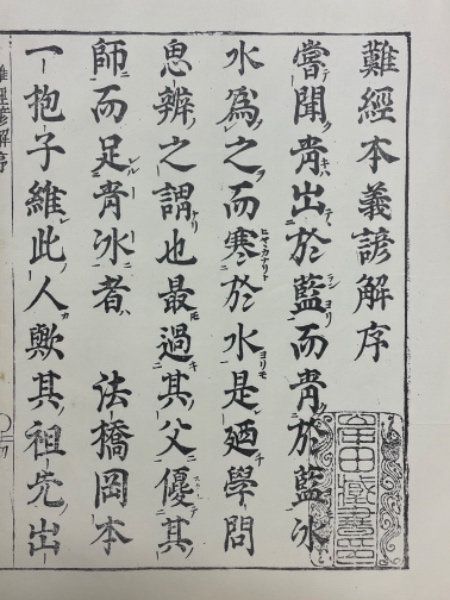 難經本義諺解序
嘗聞青出於藍而青於藍冰
水爲之而寒於水是廼學問
思辨之謂也最過其父優其
師而足青冰者　法橋岡本
一抱子維此人歟其祖先出